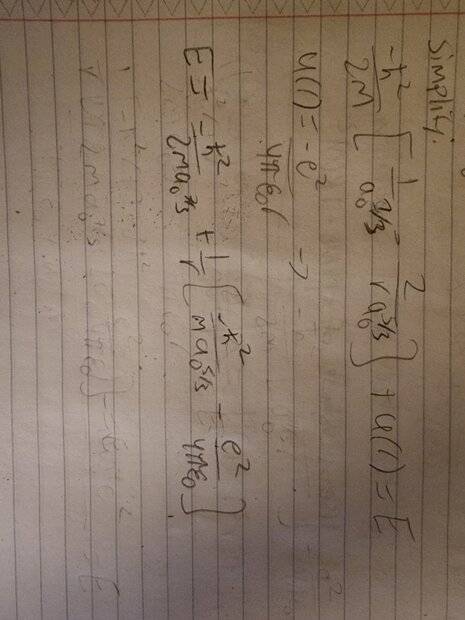 Simplify.
-ħ²/2M [1/a₀^(7/3) - 2/(r a₀^(5/3))] + U(r) = E
U(r) = -e²/(4πε₀r) →
E = -ħ²/(2Ma₀^(7/3)) + 1/r [ħ²/(Ma₀^(5/3)) - e²/(4πε₀)]